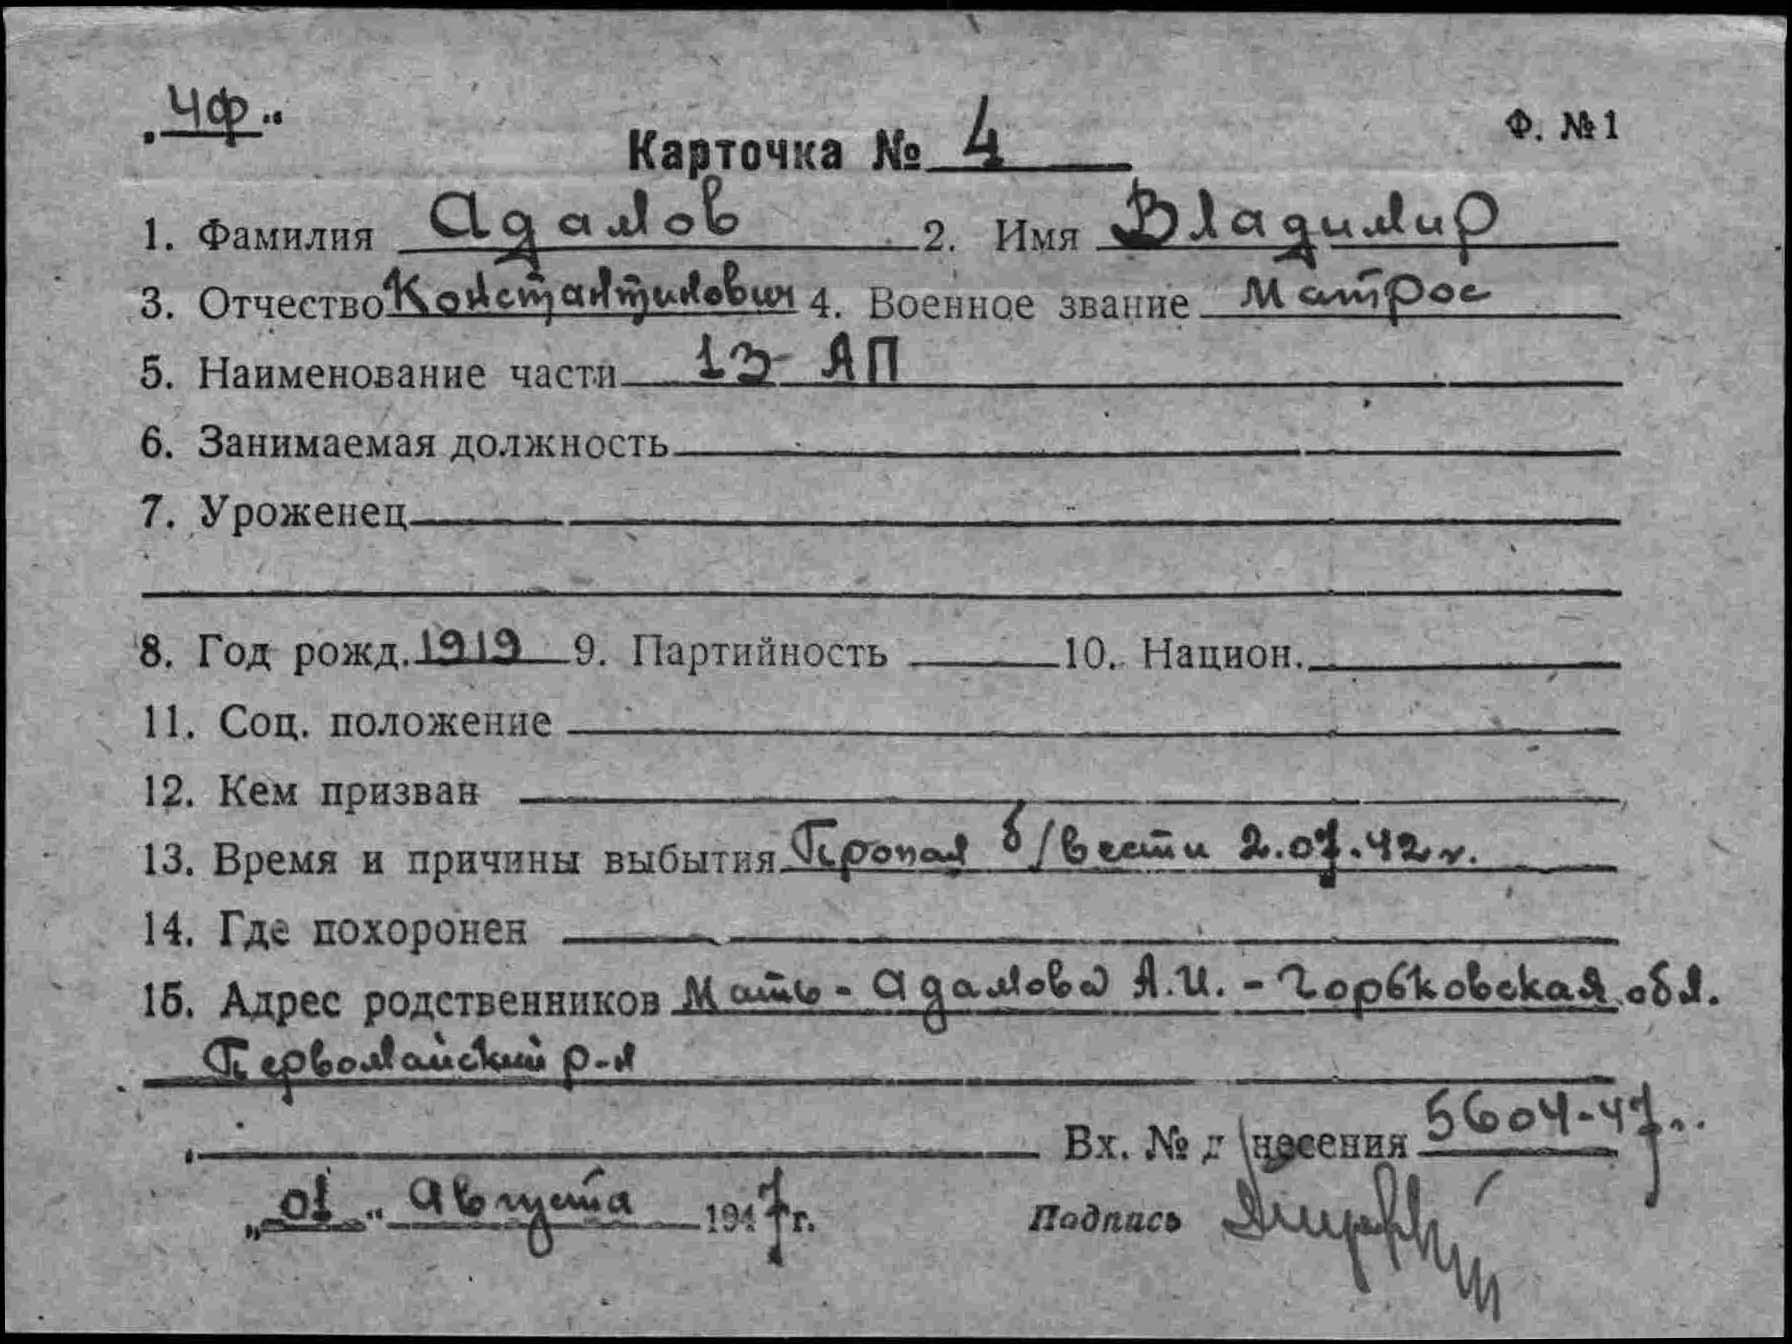 „ЧФ"
Карточка № 4
Ф. №1
1. Фамилия Адамов 2. Имя Владимир
3. Отчество Константинович 4. Военное звание Матрос
5. Наименование части 13 АП
6. Занимаемая должность
7. Уроженец
8. Год рожд. 1919 9. Партийность 10. Национ.
11. Соц. положение
12. Кем призван
13. Время и причины выбытия Пропал б/вести 2.07.42 г.
14. Где похоронен
15. Адрес родственников Мать - Адамова А.И. - Горьковская обл.
Первомайский р-н
Вх. № донесения 5604-47.
„01" Августа 1947 г. Подпись